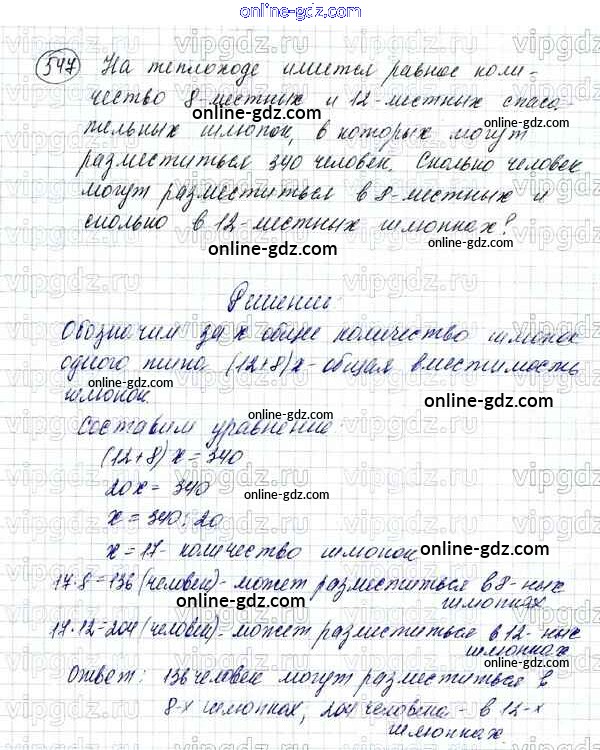 online-gdz.com
547 На теплоходе имеется равное коли-
чество 8-местных и 12-местных спаса-
тельных шлюпок, в которых могут
разместиться 340 человек. Сколько человек
могут разместиться в 8-местных и
сколько в 12-местных шлюпках?
online-gdz.com
Решение:
Обозначим за х общее количество шлюпок
одного типа (12+8)х - общая вместимость
шлюпок.
online-gdz.com
online-gdz.com
Составим уравнение:
(12+8)х = 340
online-gdz.com
20х = 340
online-gdz.com
х = 340:20
х = 17 - количество шлюпок
online-gdz.com
17·8=136 (человек) - может разместиться в 8-ных
шлюпках
online-gdz.com
17·12=204 (человек) - может разместиться в 12-ных
шлюпках
online-gdz.com
Ответ: 136 человек могут разместиться в
8-х шлюпках, 204 человека - в 12-х
шлюпках.
online-gdz.com
online-gdz.com
vipgdz.ru